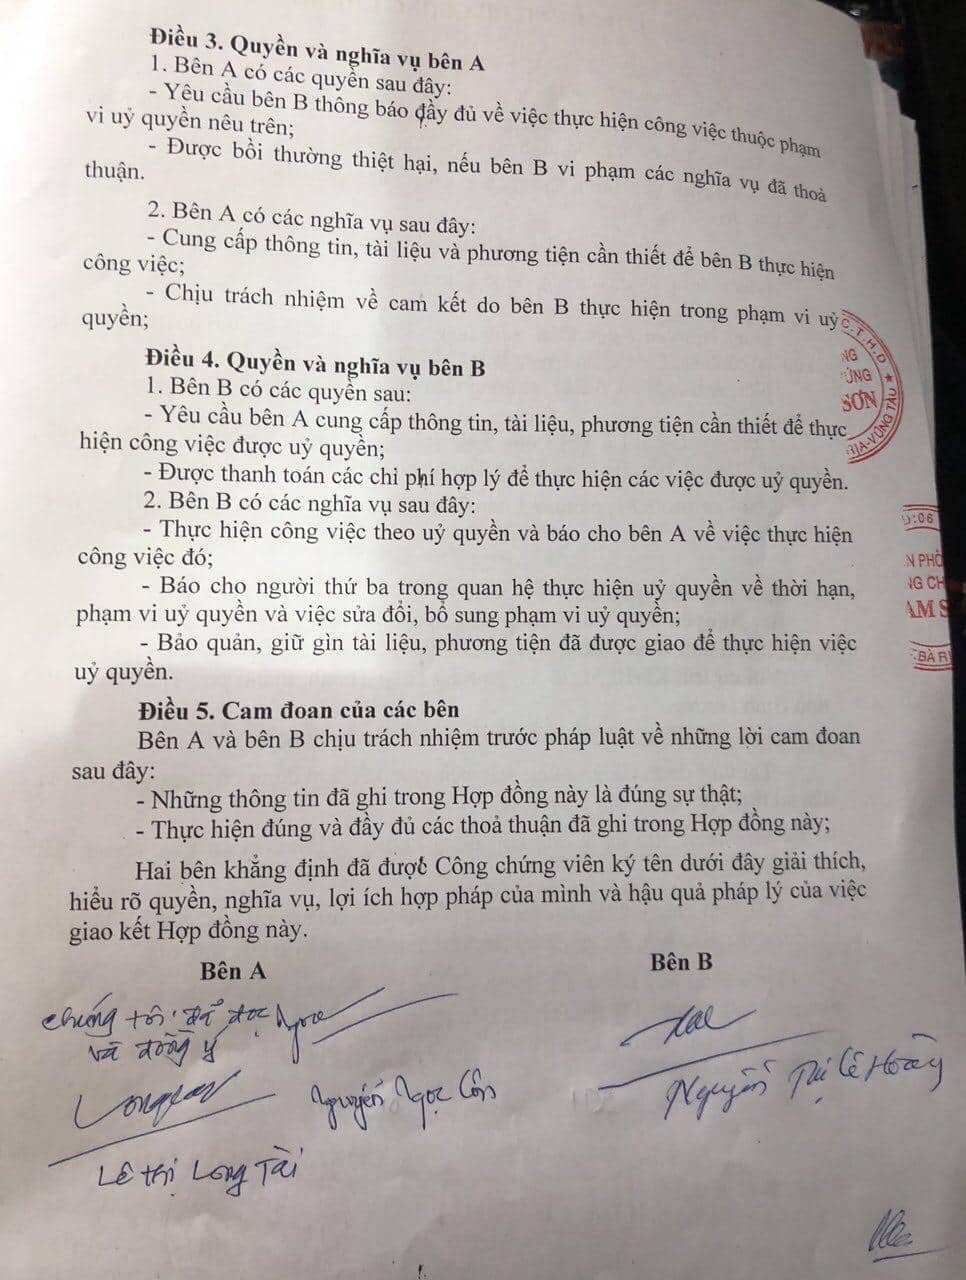 Điều 3. Quyền và nghĩa vụ bên A
1. Bên A có các quyền sau đây:
- Yêu cầu bên B thông báo đầy đủ về việc thực hiện công việc thuộc phạm
vi uỷ quyền nêu trên;
- Được bồi thường thiệt hại, nếu bên B vi phạm các nghĩa vụ đã thoả
thuận.
2. Bên A có các nghĩa vụ sau đây:
- Cung cấp thông tin, tài liệu và phương tiện cần thiết để bên B thực hiện
công việc;
- Chịu trách nhiệm về cam kết do bên B thực hiện trong phạm vi uỷ
quyền;
C.T.H.D
NG
ỨNG
SƠN
RỊA-VŨNG TÀU
Điều 4. Quyền và nghĩa vụ bên B
1. Bên B có các quyền sau:
- Yêu cầu bên A cung cấp thông tin, tài liệu, phương tiện cần thiết để thực
hiện công việc được uỷ quyền;
- Được thanh toán các chi phí hợp lý để thực hiện các việc được uỷ quyền.
2. Bên B có các nghĩa vụ sau đây:
- Thực hiện công việc theo uỷ quyền và báo cho bên A về việc thực hiện
công việc đó;
- Báo cho người thứ ba trong quan hệ thực hiện uỷ quyền về thời hạn,
phạm vi uỷ quyền và việc sửa đổi, bổ sung phạm vi uỷ quyền;
- Bảo quản, giữ gìn tài liệu, phương tiện đã được giao để thực hiện việc
uỷ quyền.
:06
N PHÒ
NG CH
AM S
BÀ R
Điều 5. Cam đoan của các bên
Bên A và bên B chịu trách nhiệm trước pháp luật về những lời cam đoan
sau đây:
- Những thông tin đã ghi trong Hợp đồng này là đúng sự thật;
- Thực hiện đúng và đầy đủ các thoả thuận đã ghi trong Hợp đồng này;
Hai bên khẳng định đã được Công chứng viên ký tên dưới đây giải thích,
hiểu rõ quyền, nghĩa vụ, lợi ích hợp pháp của mình và hậu quả pháp lý của việc
giao kết Hợp đồng này.
Bên A
Bên B
chúng tôi đã đọc
và đồng ý
Nguyễn Ngọc
Nguyễn Thị Lê Hoàng
Lê Thị Long Tài